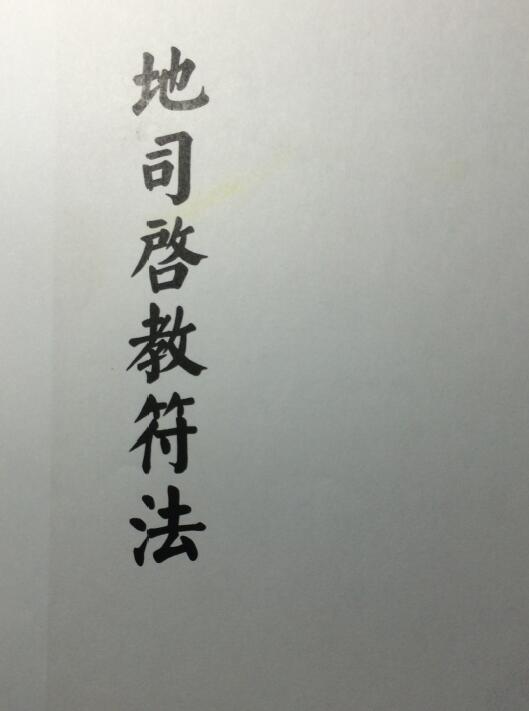 地司啓教符法